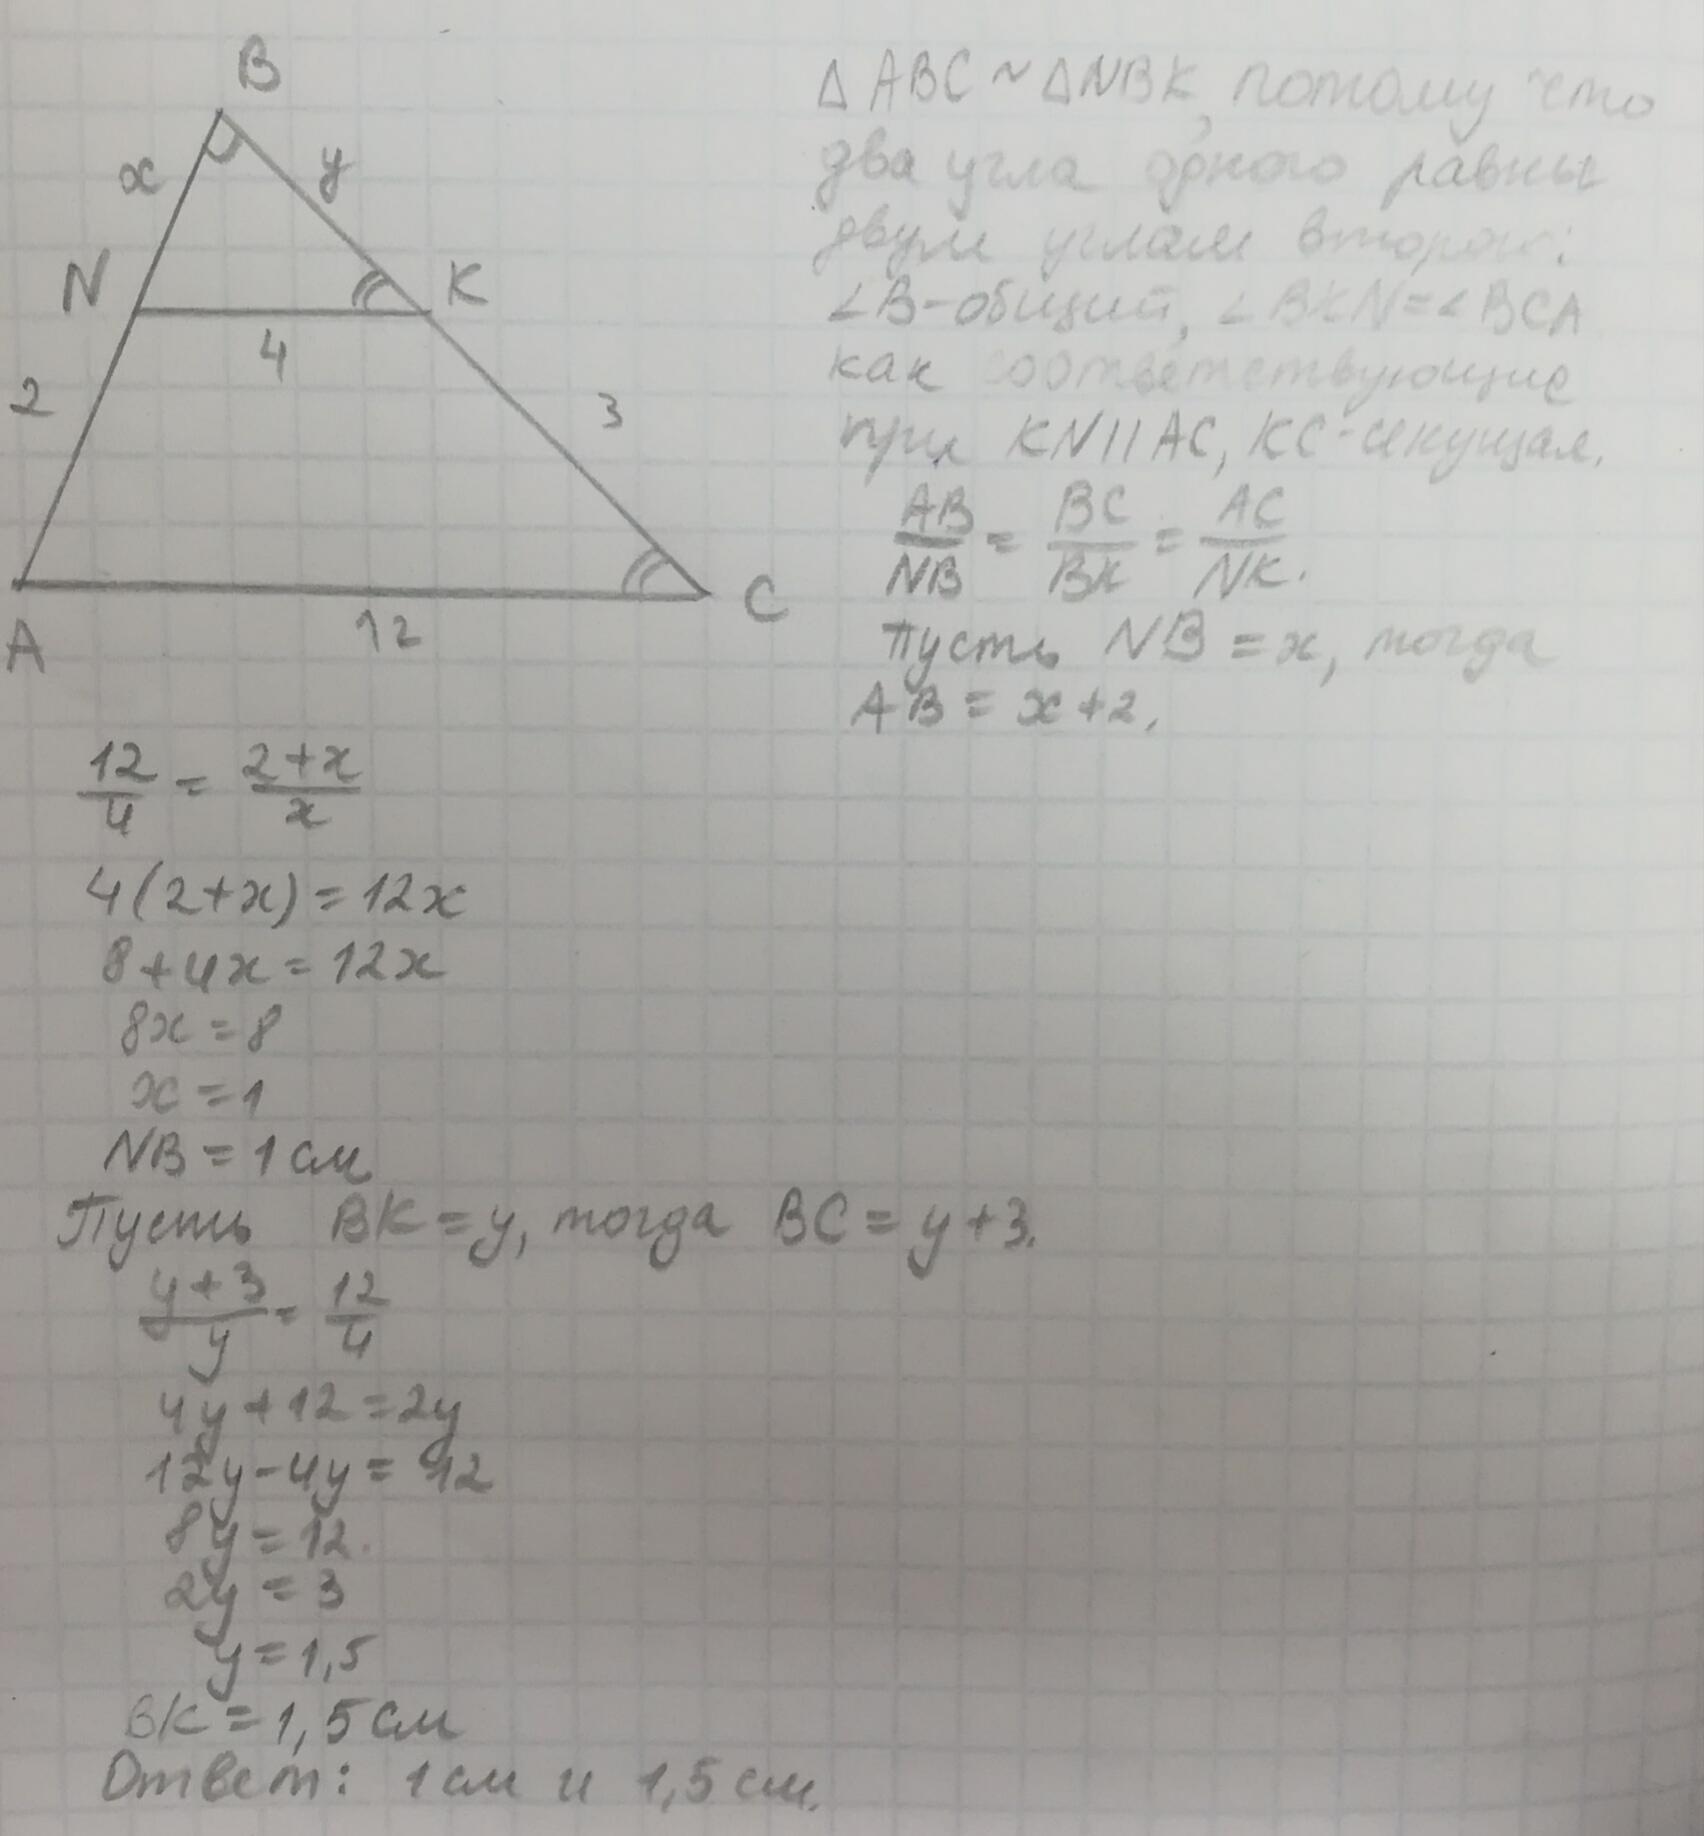 B
x
y
N
K
4
2
3
12
A
C
△ABC ~ △NBK, потому что
два угла одного равны
двум углам второго:
∠B-общий, ∠BKN=∠BCA
как соответствующие
при KN||AC, KC-секущая.
AB/NB = BC/BK = AC/NK.
Пусть NB = x, тогда
AB = x+2.
12/4 = 2+x/x
4(2+x)=12x
8+4x=12x
8x=8
x=1
NB=1см
Пусть BK=y, тогда BC=y+3.
y+3/y = 12/4
4y+12=2y
12y-4y=12
8y=12
2y=3
y=1,5
BK=1,5см
Ответ: 1см и 1,5см.